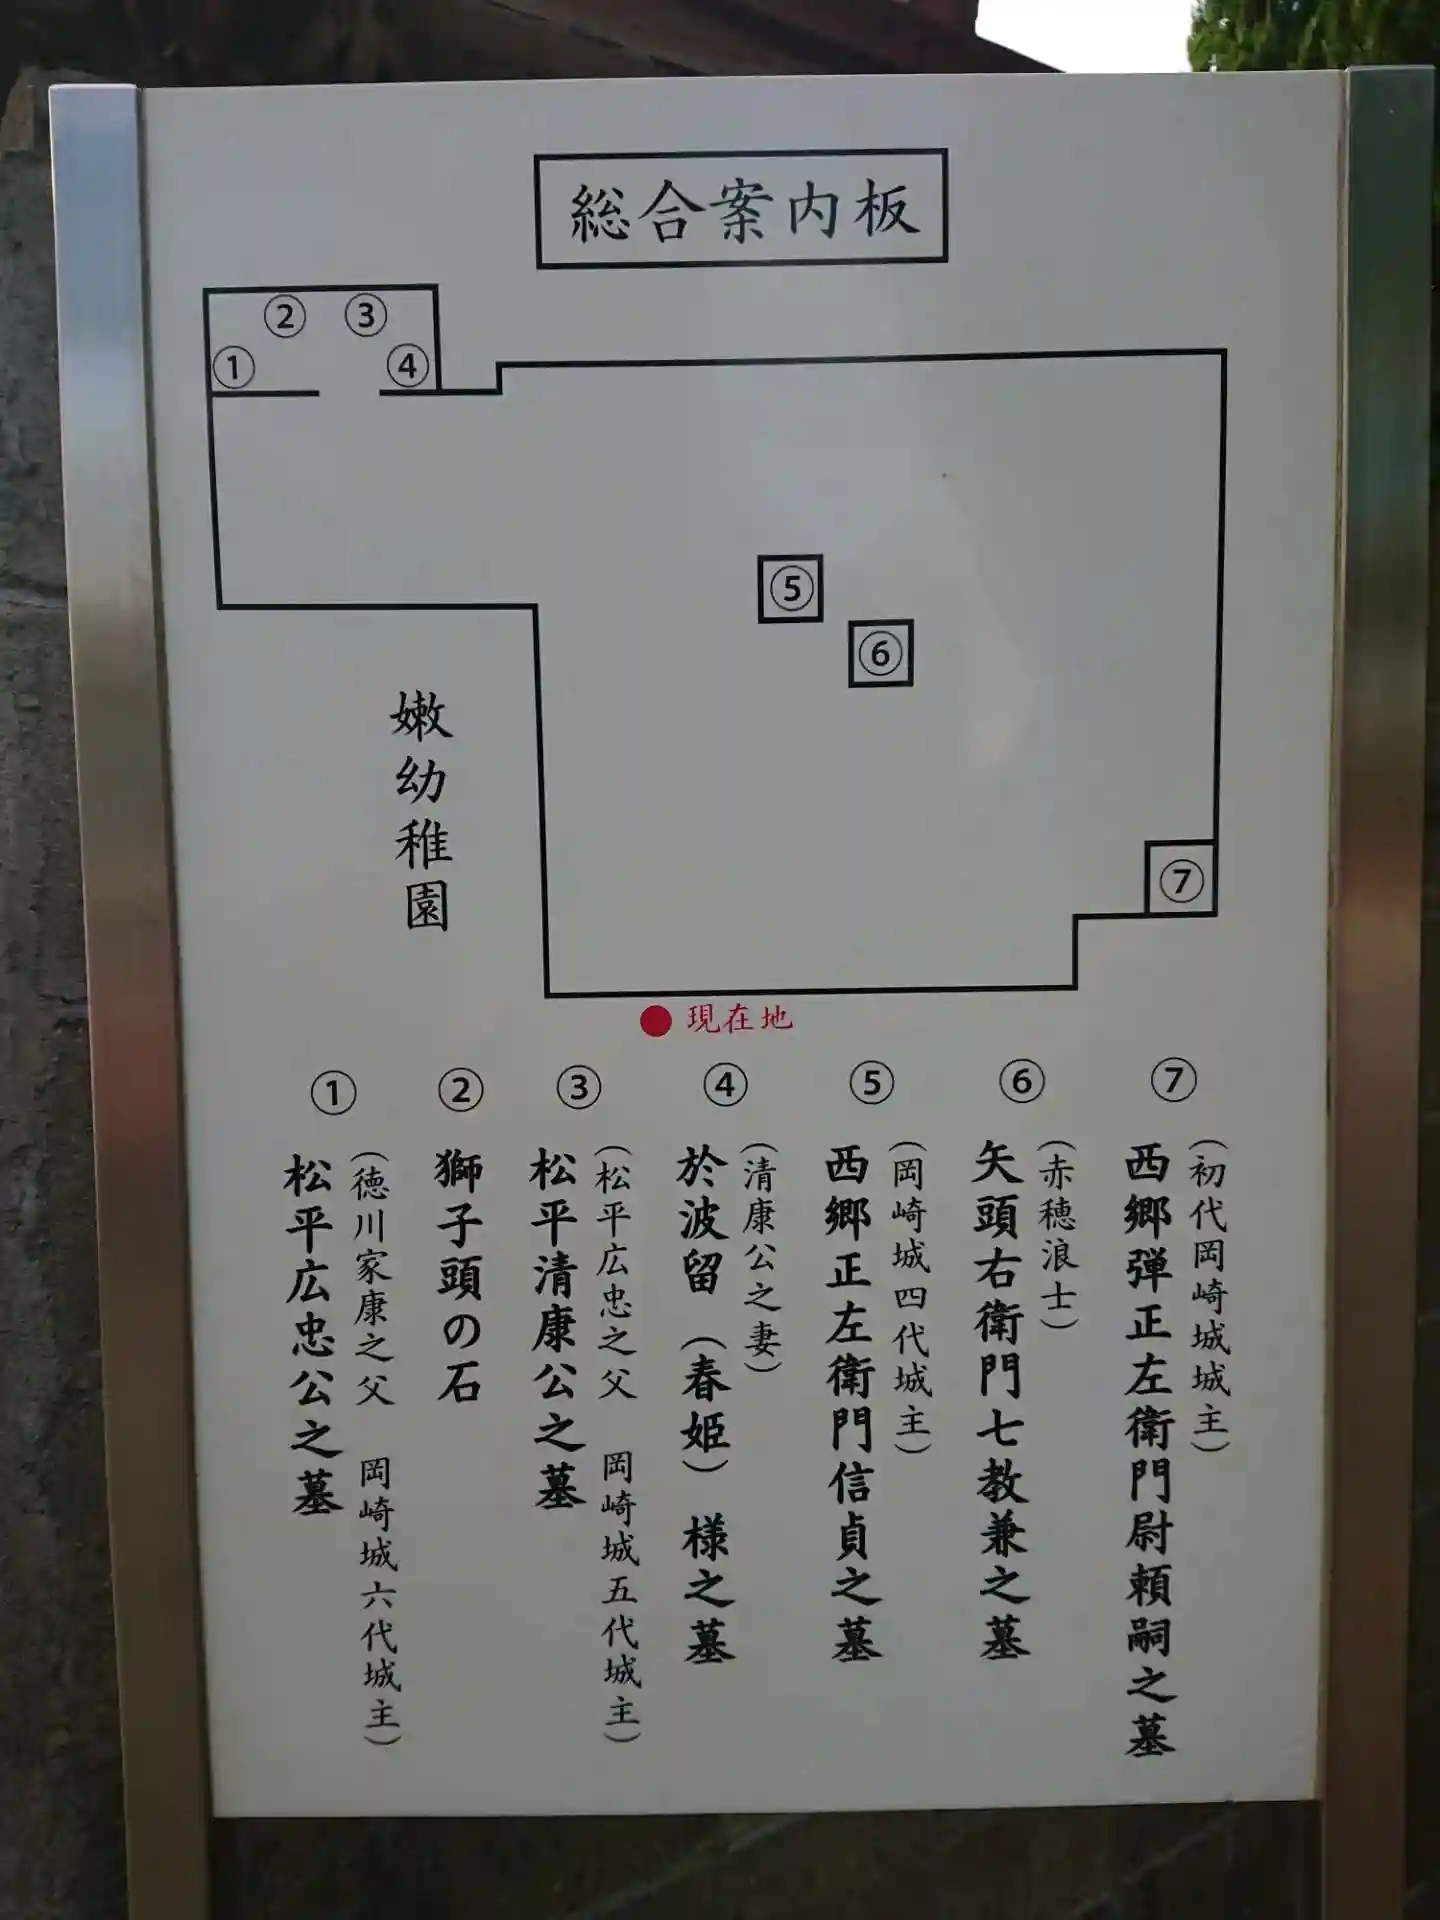 総合案内板
①
②
③
④
⑤
⑥
⑦
嫩幼稚園
現在地
⑦
(初代岡崎城城主)
西郷弾正左衛門尉頼嗣之墓
⑥
(赤穂浪士)
矢頭右衛門七教兼之墓
⑤
(岡崎城四代城主)
西郷正左衛門信貞之墓
④
(清康公之妻)
於波留(春姫)様之墓
③
(松平広忠之父 岡崎城五代城主)
松平清康公之墓
②
獅子頭の石
①
(徳川家康之父 岡崎城六代城主)
松平広忠公之墓